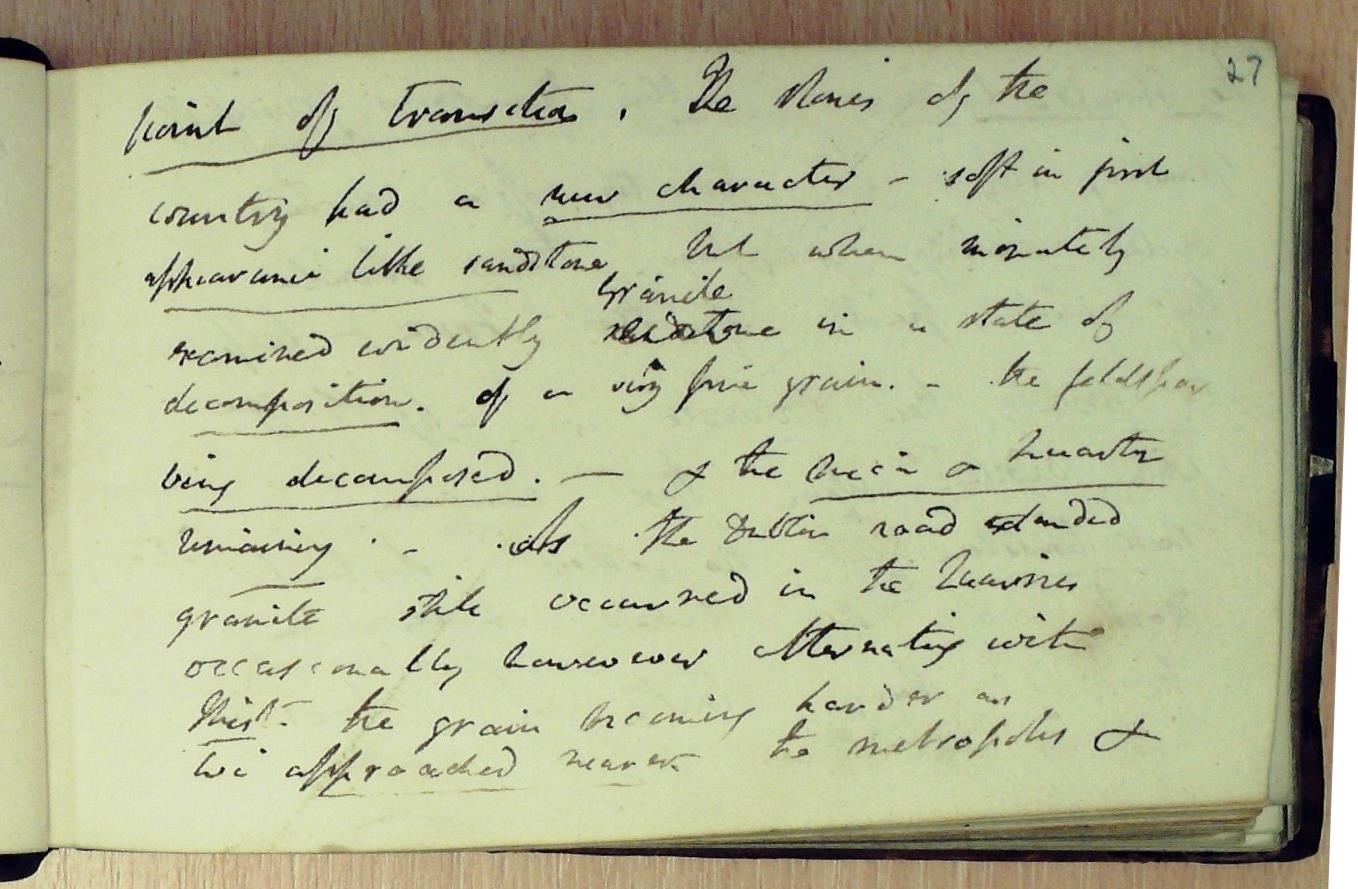 27
point of transition. The stones of the
country had a new character - soft in first
appearance like sandstone but when minutely
granite
examined evidently sandstone in a state of
decomposition. of a very fine grain. - the feldspar
being decomposed. — & the mica & quartz
remaining - As the Dublin road extended
granite still occurred in the quarries
occasionally however alternating with
shist - the grain becoming harder as
we approached nearer the metropolis &